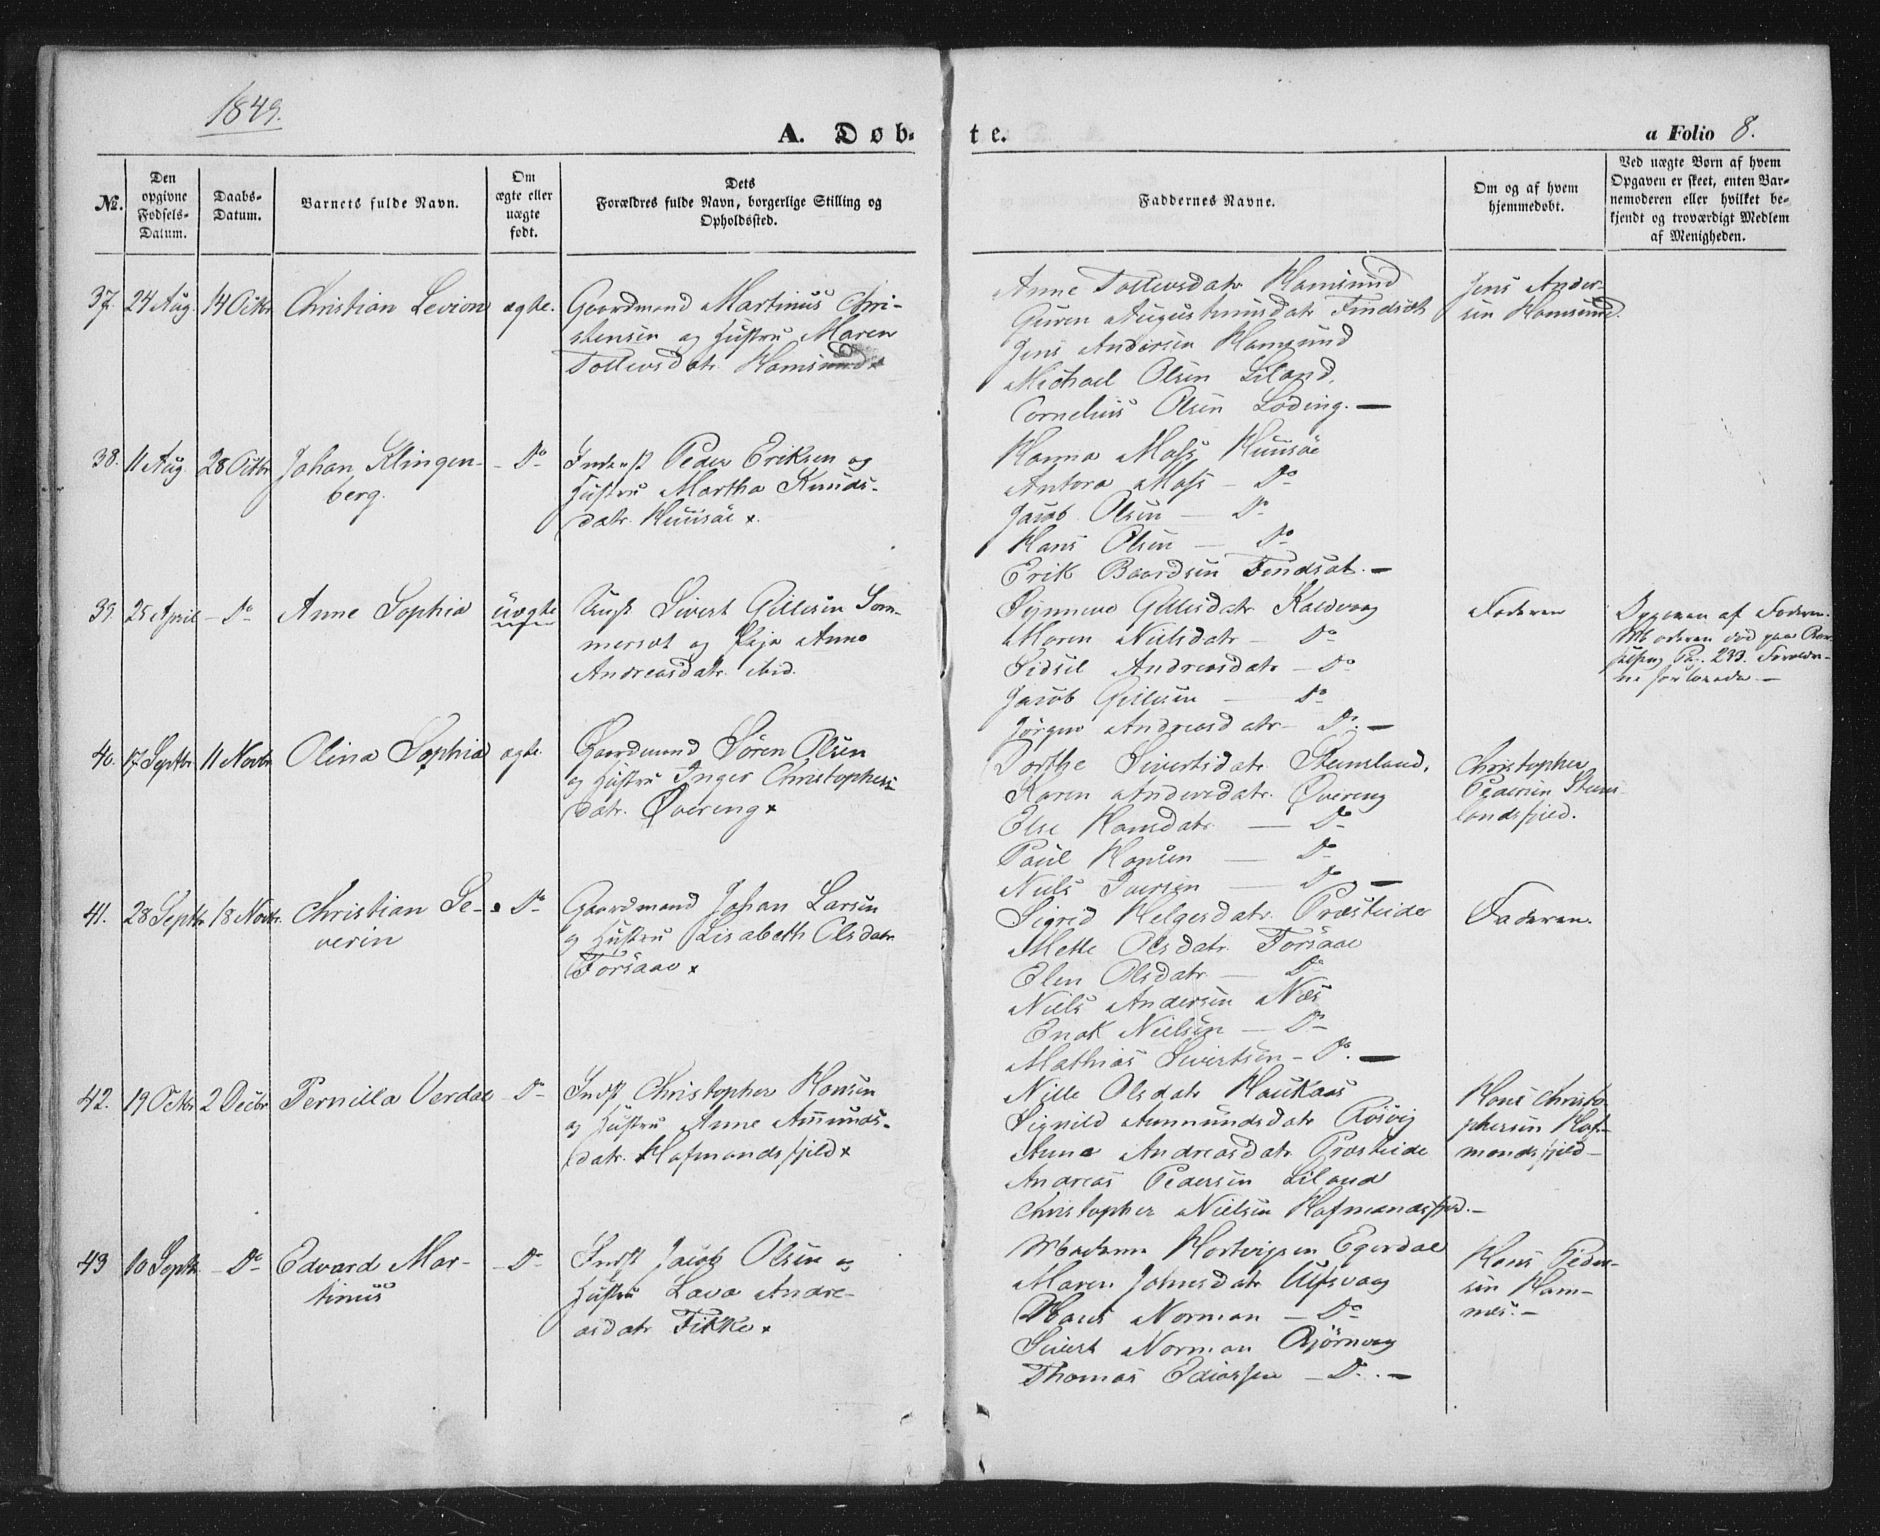 1849.
A. Døb-
te.
a Folio 8.
№.
Den
opgivne
Fødsels-
Datum.
Daabs-
Datum.
Barnets fulde Navn.
Om
ægte eller
uægte
født.
Dets
Forældres fulde Navn, borgerlige Stilling og
Opholdssted.
Faddernes Navne.
Om og af hvem
hjemmedøbt.
Ved uægte Børn af hvem
Opgaven er skeet, enten Bar-
nemoderen eller hvilket be-
kjendt og troværdigt Medlem
af Menigheden.
37. 24 Aug. 14 Octbr Christian Levion ægte.
Gaardmand Martinus Chri-
stensen og Hustru Maren
Tollevsdtr Hamsund x
Anne Tollevsdatr Hamsund
Guren Augustinusdatr Findset
Jens Andersen Hamsund
Michael Olsen Liland.
Cornelius Olsen Løding. —
Jens Ander-
sen Hamsund.
38. 11 Aug 28 Octbr Johan Klingen-
berg.
- Do
Inderst Peder Eriksen og
Hustru Martha Knuds-
datr. Huusöe x.
Hanna Moss Huusöe
Antora Moss - Do
Jacob Olsen — Do
Hans Olsen — Do
Erik Baardsen Findsæt. —
39. 25 April - Do Anne Sophia uægte
Ungk Sivert Gillesen Som-
mersæt og Pige Anne
Andreasdatr. ibid.
Synneve Gillesdatr Kaldvaag
Maren Nielsdatr - Do
Sidsel Andreasdatr - Do
Jacob Gillesen — Do
Jørgen Andreasdatr - Do. —
Faderen
Opgaven af Faderen.
Moderen død paa
Pa. 233. Foreldre-
ne forlovede —
40. 17 Septbr 11 Novbr Olina Sophia ægte
Gaardmand Sören Olsen
og Hustru Inger Christophers
datr. Øvereng x
Dorthe Sivertsdatr Stemland,
Karen Andersdatr. Øvereng
Else Hansdatr. — Do
Paul Hansen — Do
Niels Iversen — Do —
Christopher
Pedersen Stem-
landsfjeld.
41. 28 Septbr 18 Novbr. Christian Se-
verin
- Do
Gaardmand Johan Larsen
og Hustru Lisabeth Olsdatr
Forsaae x
Sigrid Helgesdatr. Præsteide
Mette Olsdatr. Forsaae
Elen Olsdatr — Do
Niels Andersen Næs
Enok Nielsen — Do
Mathias Sivertsen - Do. —
Faderen.
42. 19 Octbr 2 Decbr Pernilla Verdal - Do
Indst Christopher Hansen
og Hustru Anne Amunds-
datr. Hafmandsfjeld x
Nille Olsdatr Haukaas
Signild Ammundsdatr Rösvig
Anne Andreasdatr Præsteide
Andreas Pedersen Liland
Christopher Nielsen Hafmandsfjed. —
Hans Christo-
phersen Haf-
mandsfjeld —
43 10 Septbr - Do Edvard Mar-
tinus
- Do
Indst Jacob Olsen og
Hustru Lava Andre-
asdatr Fikke x
Madame Hartvigsen Egerdal
Maren Johnsdatr Ulfsvaag
Hans Norman - Do
Sivert Norman Bjørnvaag
Thomas Ediassen - Do. —
Hans Peder-
sen Ham-
nes. —